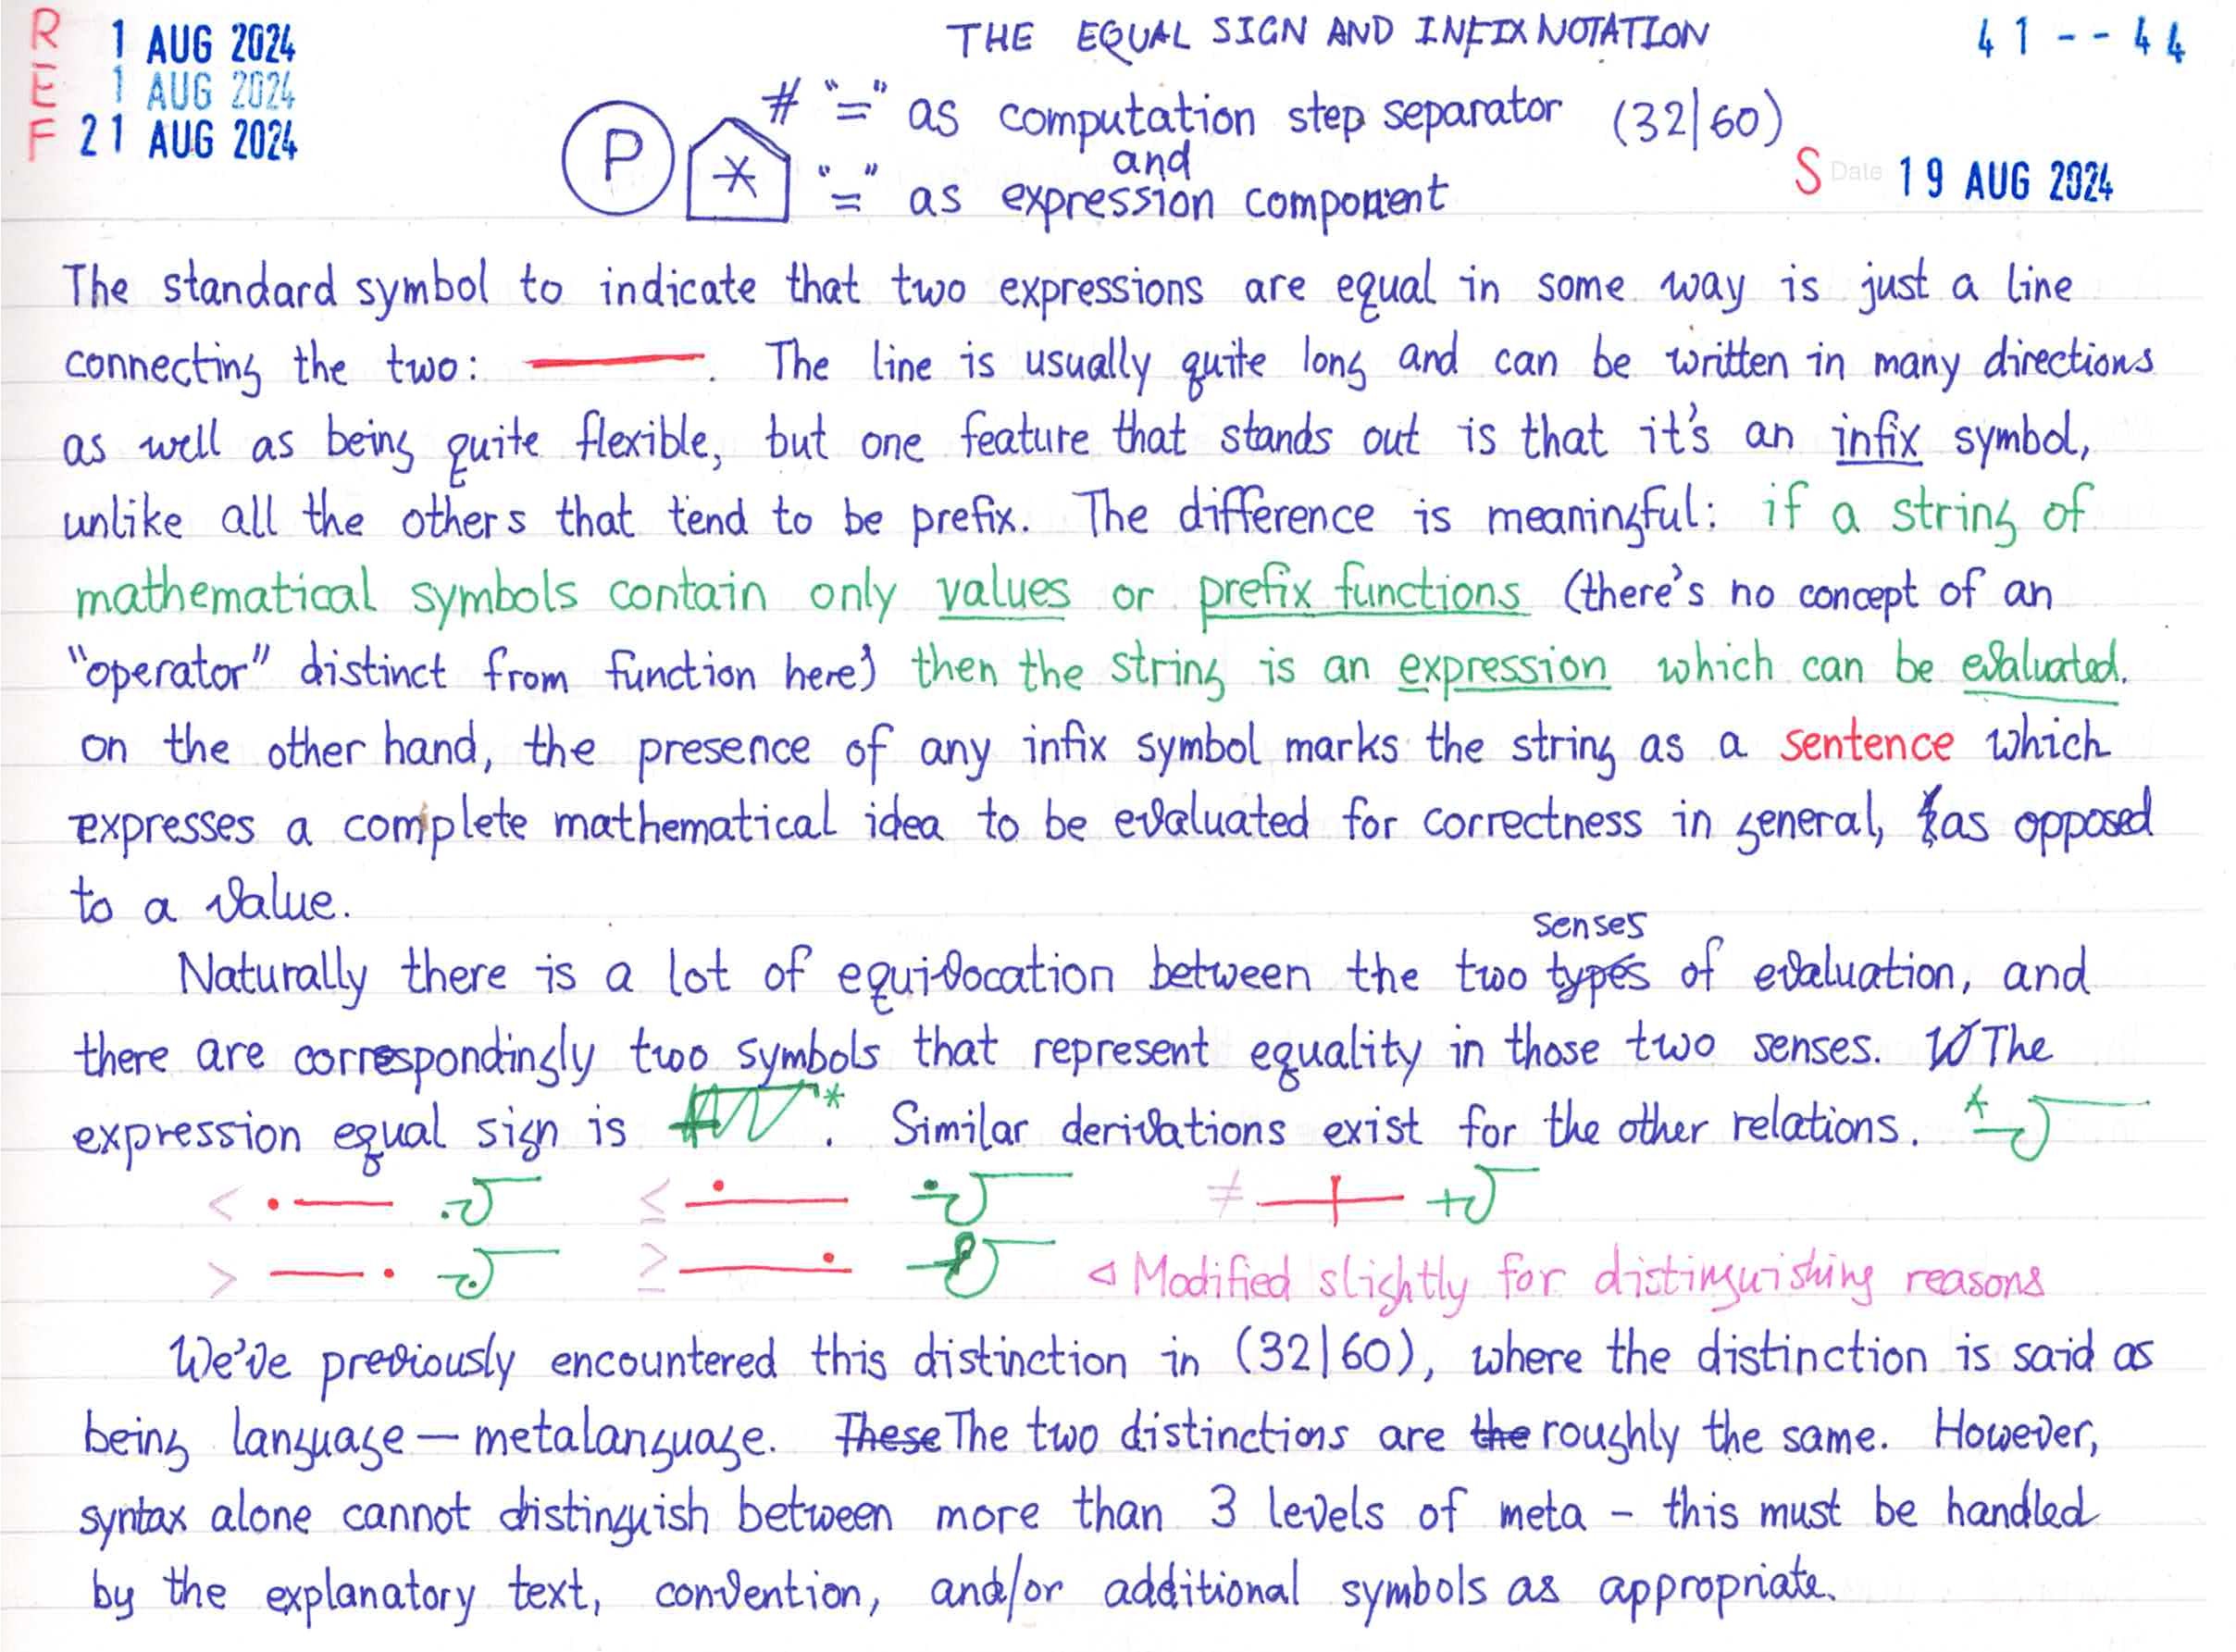 R 1 AUG 2024
E 1 AUG 2024
F 21 AUG 2024
THE EQUAL SIGN AND INFIX NOTATION
41 -- 44
P * # "=" as computation step separator (32|60)
and
"=" as expression component
S Date 19 AUG 2024
The standard symbol to indicate that two expressions are equal in some way is just a line
connecting the two: ———. The line is usually quite long and can be written in many directions
as well as being quite flexible, but one feature that stands out is that it's an infix symbol,
unlike all the others that tend to be prefix. The difference is meaningful: if a string of
mathematical symbols contain only values or prefix functions (there's no concept of an
"operator" distinct from function here) then the string is an expression which can be evaluated.
on the other hand, the presence of any infix symbol marks the string as a sentence which
expresses a complete mathematical idea to be evaluated for correctness in general, as opposed
to a value.
senses
Naturally there is a lot of equivocation between the two types of evaluation, and
there are correspondingly two symbols that represent equality in those two senses. The
expression equal sign is *. Similar derivations exist for the other relations. *
< ≤ ≠
> ≥ ◁ Modified slightly for distinguishing reasons
We've previously encountered this distinction in (32|60), where the distinction is said as
being language — metalanguage. These The two distinctions are the roughly the same. However,
syntax alone cannot distinguish between more than 3 levels of meta - this must be handled
by the explanatory text, convention, and/or additional symbols as appropriate.